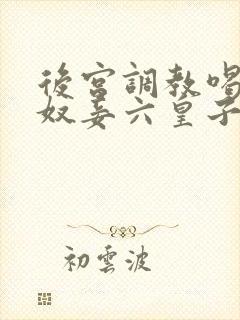 後宮調教唱
奴妾六皇子
初雲波